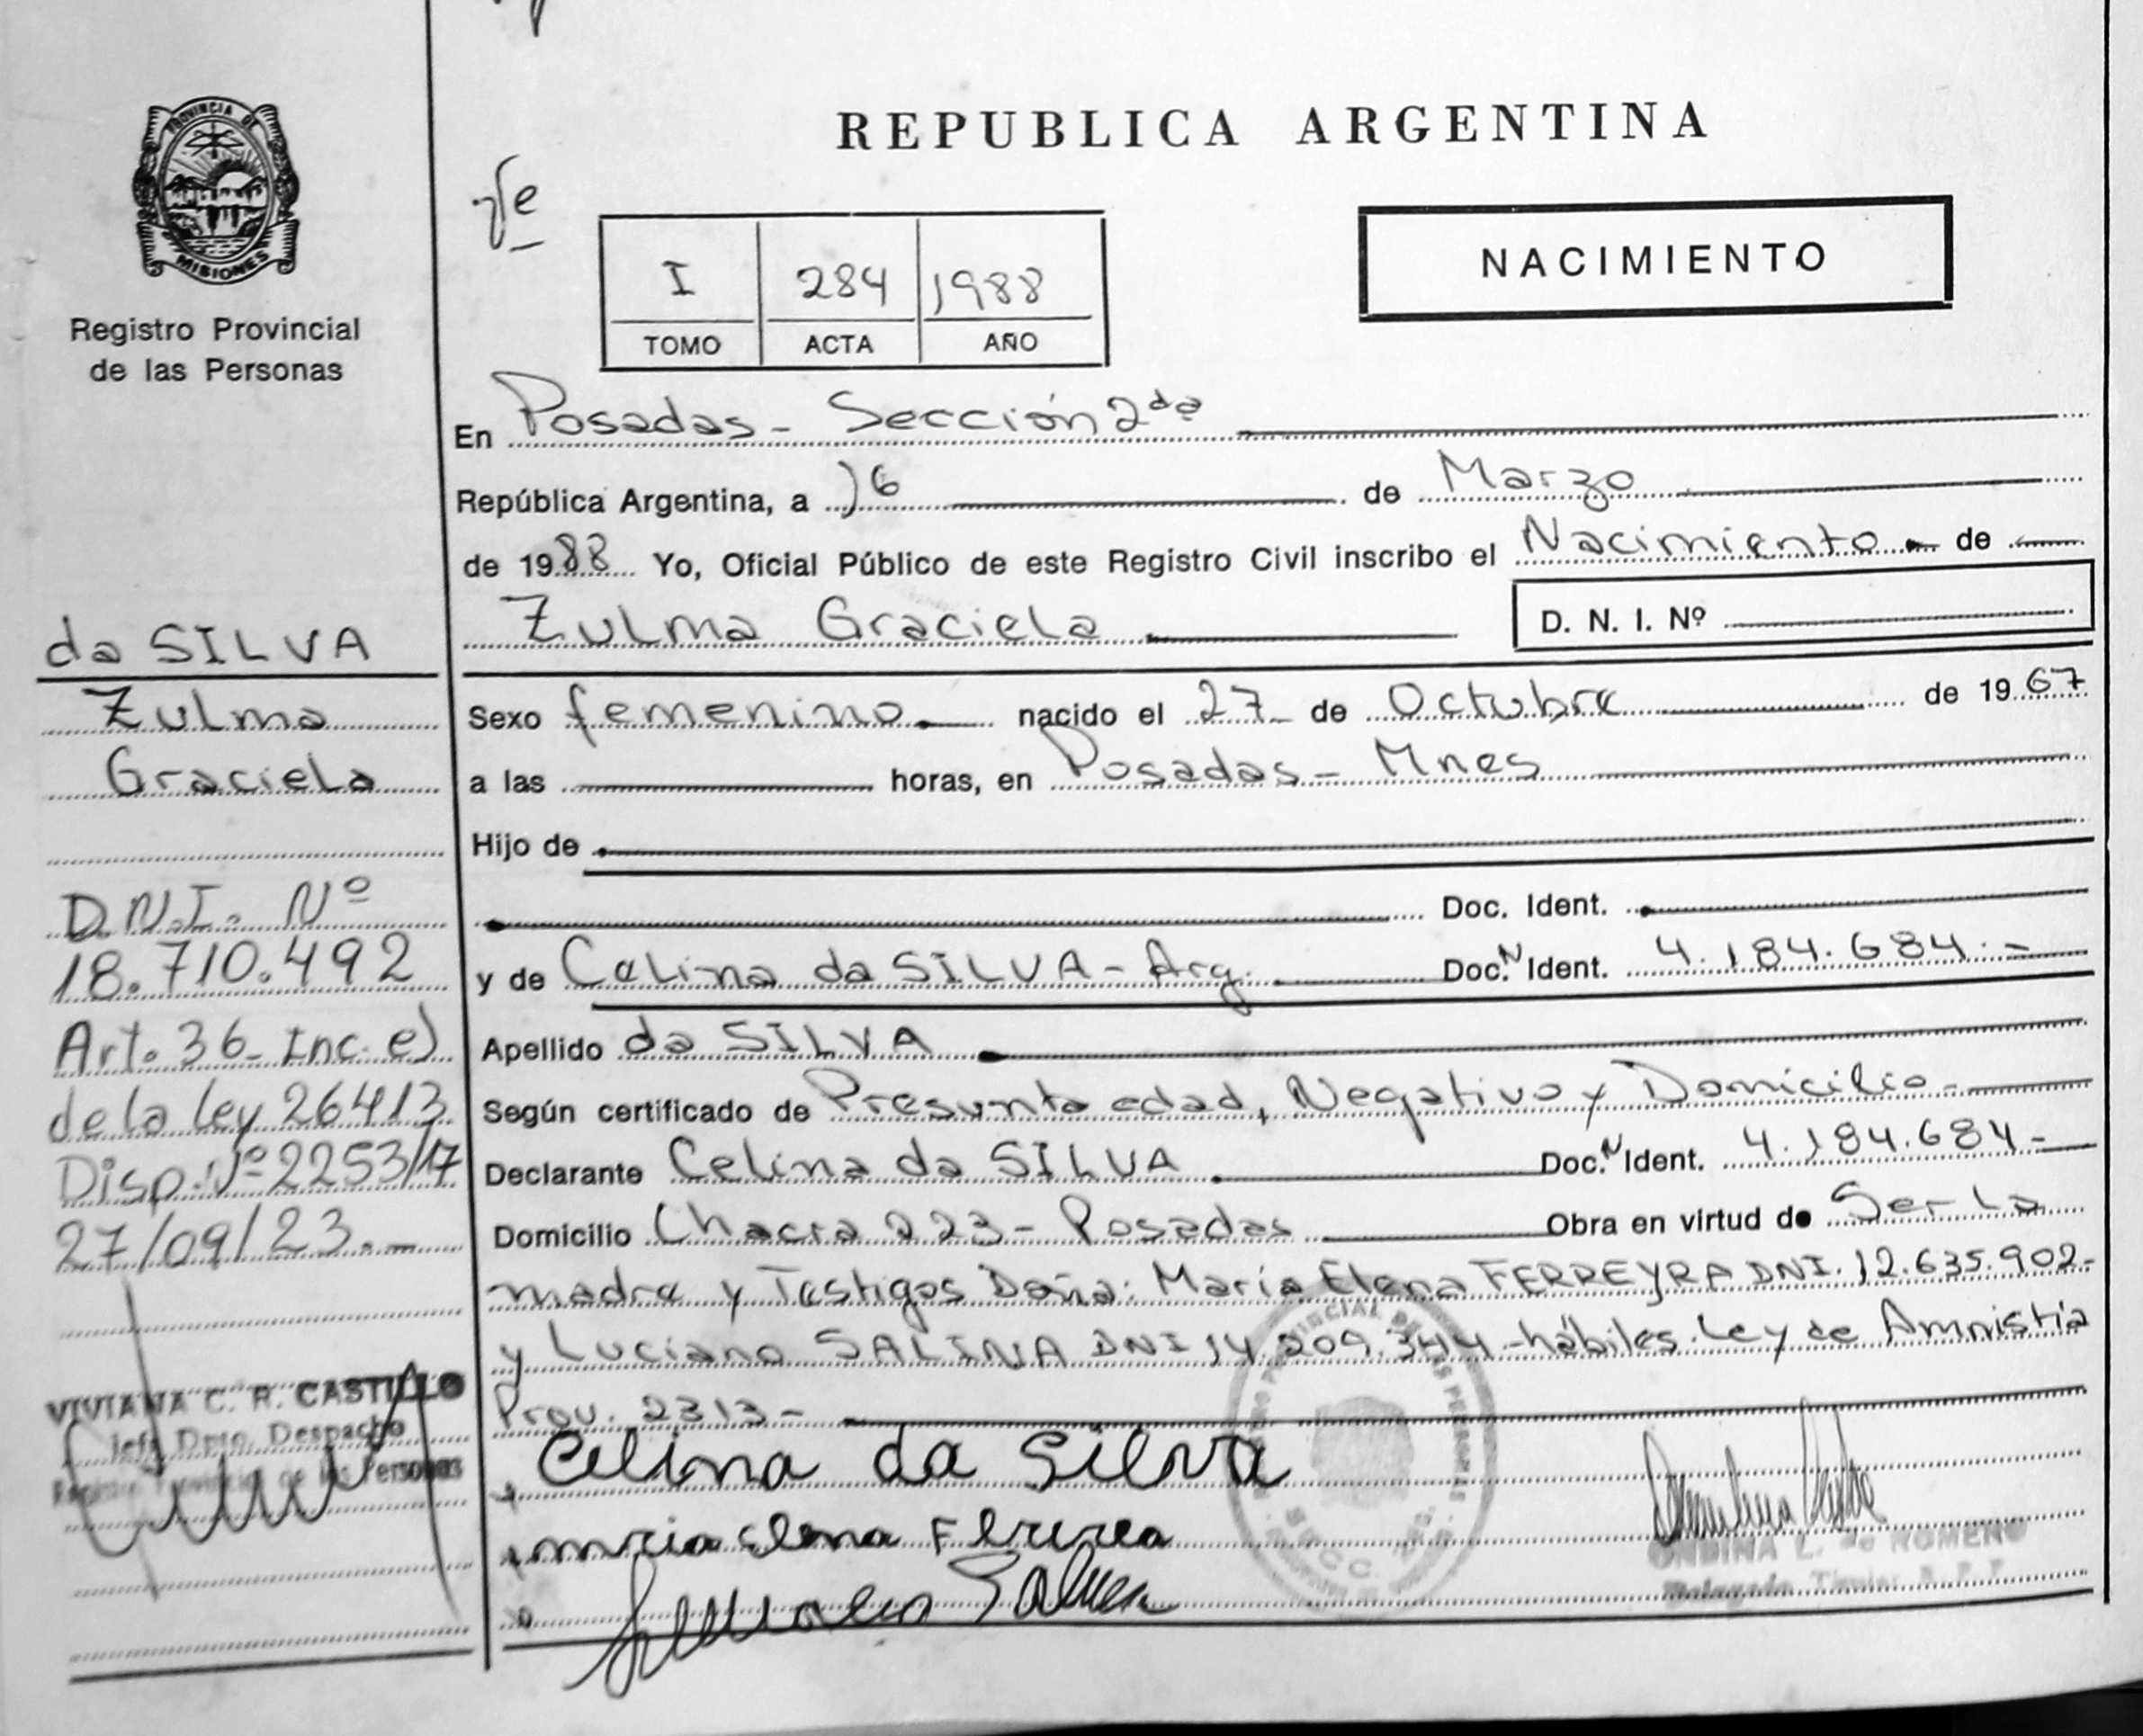 REPUBLICA ARGENTINA
PROVINCIA DE
MISIONES
Registro Provincial
de las Personas
I 284 1988
TOMO ACTA AÑO
NACIMIENTO
En Posadas - Sección 2da
República Argentina, a 16 de Marzo
de 1988 Yo, Oficial Público de este Registro Civil inscribo el Nacimiento de
Zulma Graciela
D. N. I. Nº
Sexo femenino nacido el 27 de Octubre de 1967
a las horas, en Posadas - Mnes
Hijo de
Doc. Ident.
y de Celina da SILVA - Arg. Doc. N Ident. 4.184.684.-
Apellido da SILVA
Según certificado de Presunta edad, Negativo y Domicilio-
Declarante Celina da SILVA Doc. N Ident. 4.184.684-
Domicilio Chacra 223 - Posadas Obra en virtud de Ser la
madre y Testigos Doña: María Elena FERREYRA DNI. 12.635.902-
y Luciano SALINA DNI 14.209.344 - hábiles. Ley de Amnistía
Prov. 2313-
Celina da Silva
da SILVA
Zulma
Graciela
D.N.I. Nº
18.710.492
Art. 36 - Inc. e)
de la ley 26413
Disp. Nº 2253/17
27/09/23.-
VIVIANA C. R. CASTILLO
Jefe Dpto. Despacho
Registro Provincial de las Personas
ONDINA L. de ROMERO